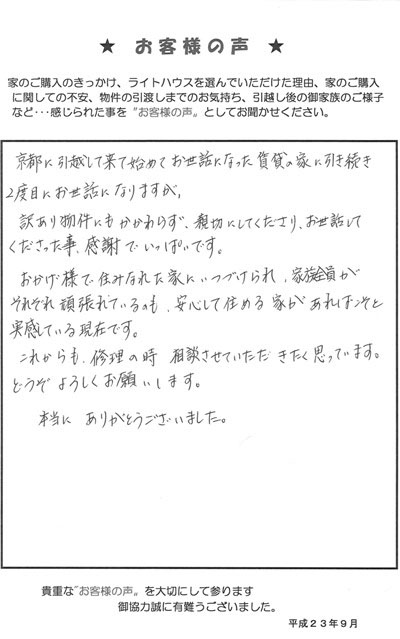 ★ お客様の声 ★
家のご購入のきっかけ、ライトハウスを選んでいただけた理由、家のご購入
に関しての不安、物件の引渡しまでのお気持ち、引越し後の御家族のご様子
など・・・感じられた事を“お客様の声”としてお聞かせください。
京都に引越して来て始めてお世話になった賃貸の家に引き続き
2度目にお世話になりますが、
訳あり物件にもかかわらず、親切にしてくださり、お世話して
くださった事、感謝でいっぱいです。
おかげ様で住みなれた家にいつづけられ、家族全員が
それぞれ頑張れているのも、安心して住める家があればこそと
実感している現在です。
これからも、修理の時 相談させていただきたく思っています。
どうぞよろしくお願いします。
本当に ありがとうございました。
貴重な“お客様の声”を大切にして参ります
御協力誠に有難うございました。
平成23年9月